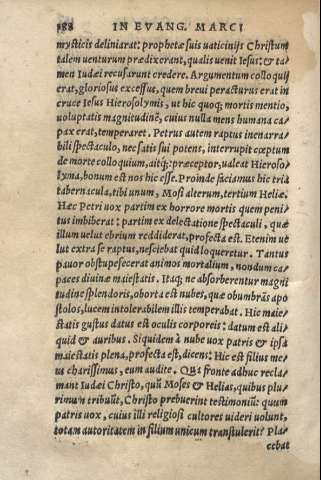 188 IN EVANG. MARCI
mysticis deliniarat: prophetæ suis uaticinijs Christum
talem uenturum prædixerant, qualis uenit Iesus: & ta⸗
men Iudæi recusarunt credere. Argumentum colloquij
erat, gloriosus excessus, quem breui peracturus erat in
cruce Iesus Hierosolymis, ut hic quoq; mortis mentio,
uoluptatis magnitudinē, cuius nulla mens humana ca⸗
pax erat, temperaret. Petrus autem raptus inenarra⸗
bili spectaculo, nec satis sui potens, interrupit cœptum
de morte colloquium, aitq;: præceptor, ualeat Hieroso⸗
lyma, bonum est nos hic esse. Proinde faciamus hic tria
tabernacula, tibi unum, Mosi alterum, tertium Heliæ.
Hæc Petri uox partim ex horrore mortis quem peni⸗
tus imbiberat: partim ex delectatione spectaculi, quæ
illum uelut ebrium reddiderat, profecta est. Etenim ue
lut extra se raptus, nesciebat quid loqueretur. Tantus
pauor obstupefecerat animos mortalium, nondum ca⸗
paces diuinæ maiestatis. Itaq; ne absorberentur magni
tudine splendoris, oborta est nubes, quæ obumbrās apo
stolos, lucem intolerabilem illis temperabat. Hic maie⸗
statis gustus datus est oculis corporeis: datum est ali⸗
quid & auribus. Siquidem à nube uox patris & ipsa
maiestatis plena, profecta est, dicens: Hic est filius me⸗
us charissimus, eum audite. Qua fronte adhuc recla⸗
mant Iudæi Christo, quū Moses & Helias, quibus plu⸗
rimum tribuūt, Christo prebuerint testimoniū: quum
patris uox, cuius illi religiosi cultores uideri uolunt,
totam autoritatem in filium unicum transtulerit? Pla⸗
cebat